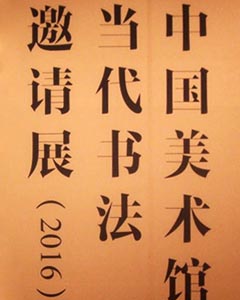 中国美术馆
当代书法
邀请展(2016)